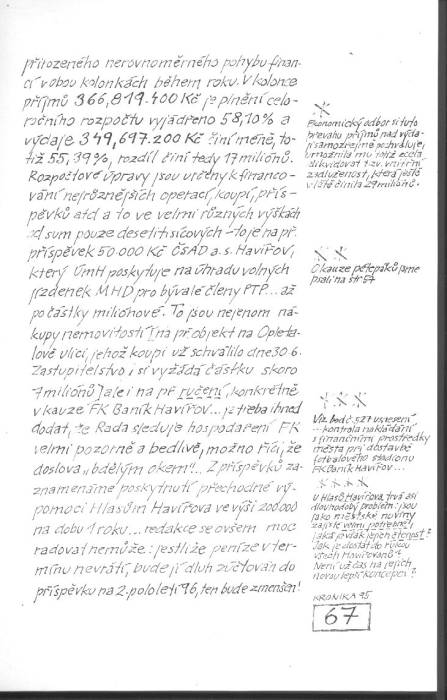 přirozeného nerovnoměrného pohybu finan-
cí v obou kolonkách během roku. V kolonce
příjmů 366,819.400 Kč je plnění celo-
ročního rozpočtu vyjádřeno 58,10% a
výdaje 349,697.200 Kč činí méně, to-
tiž 55,39%, rozdíl činí tedy 17 miliónů.
Rozpočtové úpravy jsou určeny k financo-
vání nejrůznějších operací, koupí, přís-
pěvků atd a to ve velmi různých výškách
od sum pouze desetitisícových – to je na př.
příspěvek 50.000 Kč ČSAD a.s. Havířov,
který ÚmH poskytuje na úhradu volných
jízdenek MHD pro bývalé členy PTP... až
po částky miliónové. To jsou nejenom ná-
kupy nemovitostí [na př objekt na Opleta-
lově ulici, jehož koupi už schválilo dne 30.6.
Zastupitelstvo i si vyžádá částku skoro
7 miliónů] ale i na př ručení, konkrétně
v kauze FK Baník Havířov... je třeba ihned
dodat, že Rada sleduje hospodaření FK
velmi pozorně a bedlivě, možno říci, že
doslova „bdělým okem"!.. Z příspěvků za-
znamenáme poskytnutí přechodné vý-
pomoci Hlasům Havířova ve výši 200000
na dobu 1 roku... redakce se ovšem moc
radovat nemůže: jestliže peníze v ter-
mínu nevrátí, bude jí dluh zúčtován do
příspěvku na 2. pololetí 96, ten bude zmenšen!
Ekonomický odbor si tuto
převahu příjmů nad výda-
ji samozřejmě schvaluje,
umožnila mu totiž zcela
zlikvidovat t.zv. vnitřní
zadluženost, která ještě
v létě činila 29 miliónů.
O kauze petépáků jsme
psali na str 57
Viz. bod č. 527 usnesení
... kontrola nakládání
s finančními prostředky
města při dostavbě
fotbalového stadionu
FK Baník Havířov...
U Hlasů Havířova trvá asi
dlouhodobý problém: jsou
jako městské noviny
zajisté velmi potřebné!
Jaká je však jejich čtenost?
Jak je dostat do rukou
všech Havířovanů?
Není už čas na jejich
novou lepší koncepci?
KRONIKA 95
67